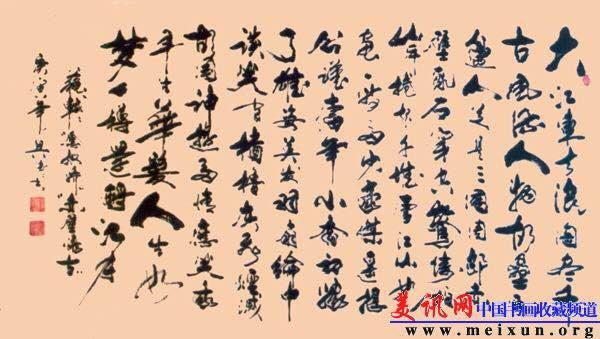 大江東去浪淘盡千
古風流人物故壘西
邊人道是三國周郎赤
壁亂石穿空驚濤拍
岸捲起千堆雪江山如
畫一時多少豪傑遙想
公謹當年小喬初嫁
了雄姿英發羽扇綸巾
談笑間檣櫓灰飛煙滅
故國神遊多情應笑我
早生華髮人生如
夢一樽還酹江月
蘇軾念奴嬌赤壁懷古
庚寅年
美讯网 中国书画收藏频道
www.meixun.org